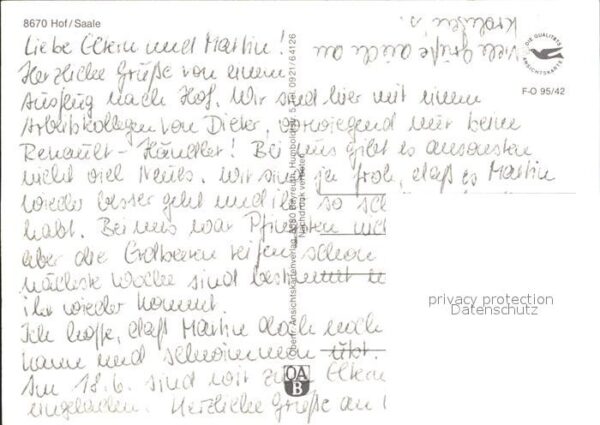 8670 Hof/Saale
Liebe Eltern und Martin!
Herzliche Grüße von einem
Ausflug nach Hof. Wir sind hier mit einem
Arbeitskollegen von Dieter, vorwiegend nur beim
Renault-Händler! Bei uns gibt es ansonsten
nicht viel Neues. Wir sind ja froh, daß es Martin
wieder besser geht und ihr so sch
habt. Bei uns war Pfingsten nich
aber die Erdbeeren reifen schon
nächste Woche sind bestimmt
ihr wieder kommt.
Ich hoffe, daß Martin doch noch
kann und schwimmen übt.
Am 18.6. sind wir zu Eltern
eingeladen. Herzliche Grüße an
Viele Grüße auch an
DIE QUALITÄTS
ANSICHTSKARTE
F-O 95/42
Oberfr. Ansichtskartenverlag, 8580 Bayreuth, Humboldtstr. 5, Tel. 0921/64126
Nachdruck verboten
OA
B
privacy protection
Datenschutz